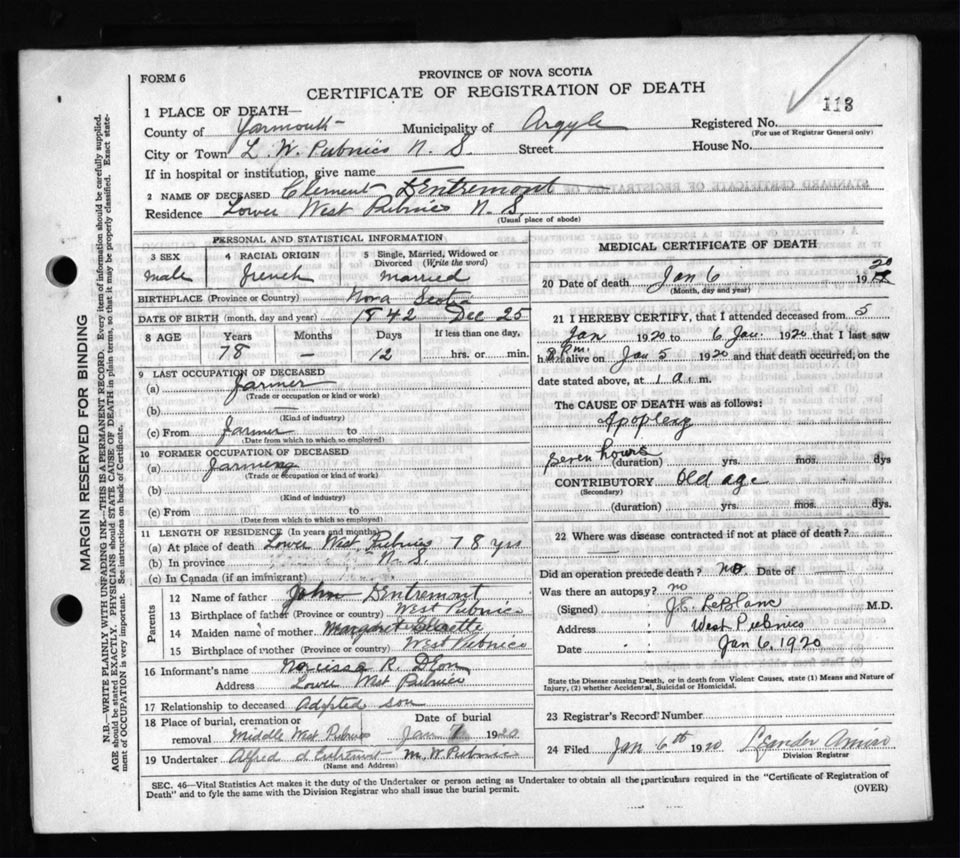 FORM 6
PROVINCE OF NOVA SCOTIA
CERTIFICATE OF REGISTRATION OF DEATH
113
1 PLACE OF DEATH—
County of Yarmouth Municipality of Argyle Registered No.
(For use of Registrar General only)
City or Town L. W. Pubnico N. S. Street House No.
If in hospital or institution, give name —
2 NAME OF DECEASED Clement Dentremont
Residence Lower West Pubnico N. S.
(Usual place of abode)
PERSONAL AND STATISTICAL INFORMATION
3 SEX male
4 RACIAL ORIGIN French
5 Single, Married, Widowed or Divorced (Write the word) married
BIRTHPLACE (Province or Country) Nova Scotia
DATE OF BIRTH (month, day and year) 1842 Dec 25
8 AGE Years Months Days If less than one day,
78 — 12 hrs. or min.
9 LAST OCCUPATION OF DECEASED
(a) Farmer
(Trade or occupation or kind or work)
(b) —
(Kind of industry)
(c) From Farmer to
(Date from which to which so employed)
10 FORMER OCCUPATION OF DECEASED
(a) Farming
(Trade or occupation or kind of work)
(b)
(Kind of industry)
(c) From to
(Date from which to which so employed)
11 LENGTH OF RESIDENCE (In years and months)
(a) At place of death Lower West Pubnico 78 yrs
(b) In province N. S.
(c) In Canada (if an immigrant)
Parents
12 Name of father John Dentremont
13 Birthplace of father (Province or country) West Pubnico
14 Maiden name of mother Margaret
15 Birthplace of mother (Province or country) West Pubnico
16 Informant's name Narcisse R. D'Eon
Address Lower West Pubnico
17 Relationship to deceased Adopted son
18 Place of burial, cremation or removal Middle West Pubnico
Date of burial Jan 1920
19 Undertaker Alfred d'Entremont M. W. Pubnico
(Name and Address)
MEDICAL CERTIFICATE OF DEATH
20 Date of death Jan 6 1920
(Month, day and year)
21 I HEREBY CERTIFY, that I attended deceased from 5
Jan 1920 to 6 Jan. 1920 that I last saw
h alive on Jan 5 1920 and that death occurred, on the
date stated above, at 1 a. m.
The CAUSE OF DEATH was as follows:
Apoplexy
Seven hours
(duration) yrs. mos. dys
CONTRIBUTORY Old age
(Secondary)
(duration) yrs. mos. dys
22 Where was disease contracted if not at place of death?
—
Did an operation precede death? no. Date of —
Was there an autopsy? no
(Signed) J. E. LeBlanc M.D.
Address West Pubnico
Date Jan 6, 1920
State the Disease causing Death, or in death from Violent Causes, state (1) Means and Nature of
Injury, (2) whether Accidental, Suicidal or Homicidal.
23 Registrar's Record Number
24 Filed Jan 6th 1920 Leander Amiro
Division Registrar
SEC. 46—Vital Statistics Act makes it the duty of the Undertaker or person acting as Undertaker to obtain all the particulars required in the "Certificate of Registration of
Death" and to fyle the same with the Division Registrar who shall issue the burial permit.
(OVER)
MARGIN RESERVED FOR BINDING
N.B.—WRITE PLAINLY WITH UNFADING INK—THIS IS A PERMANENT RECORD. Every item of information should be carefully supplied.
AGE should be stated EXACTLY. PHYSICIANS should STATE CAUSE OF DEATH in plain terms, so that it may be properly classified. Exact state-
ment of OCCUPATION is very important. See instructions on back of Certificate.